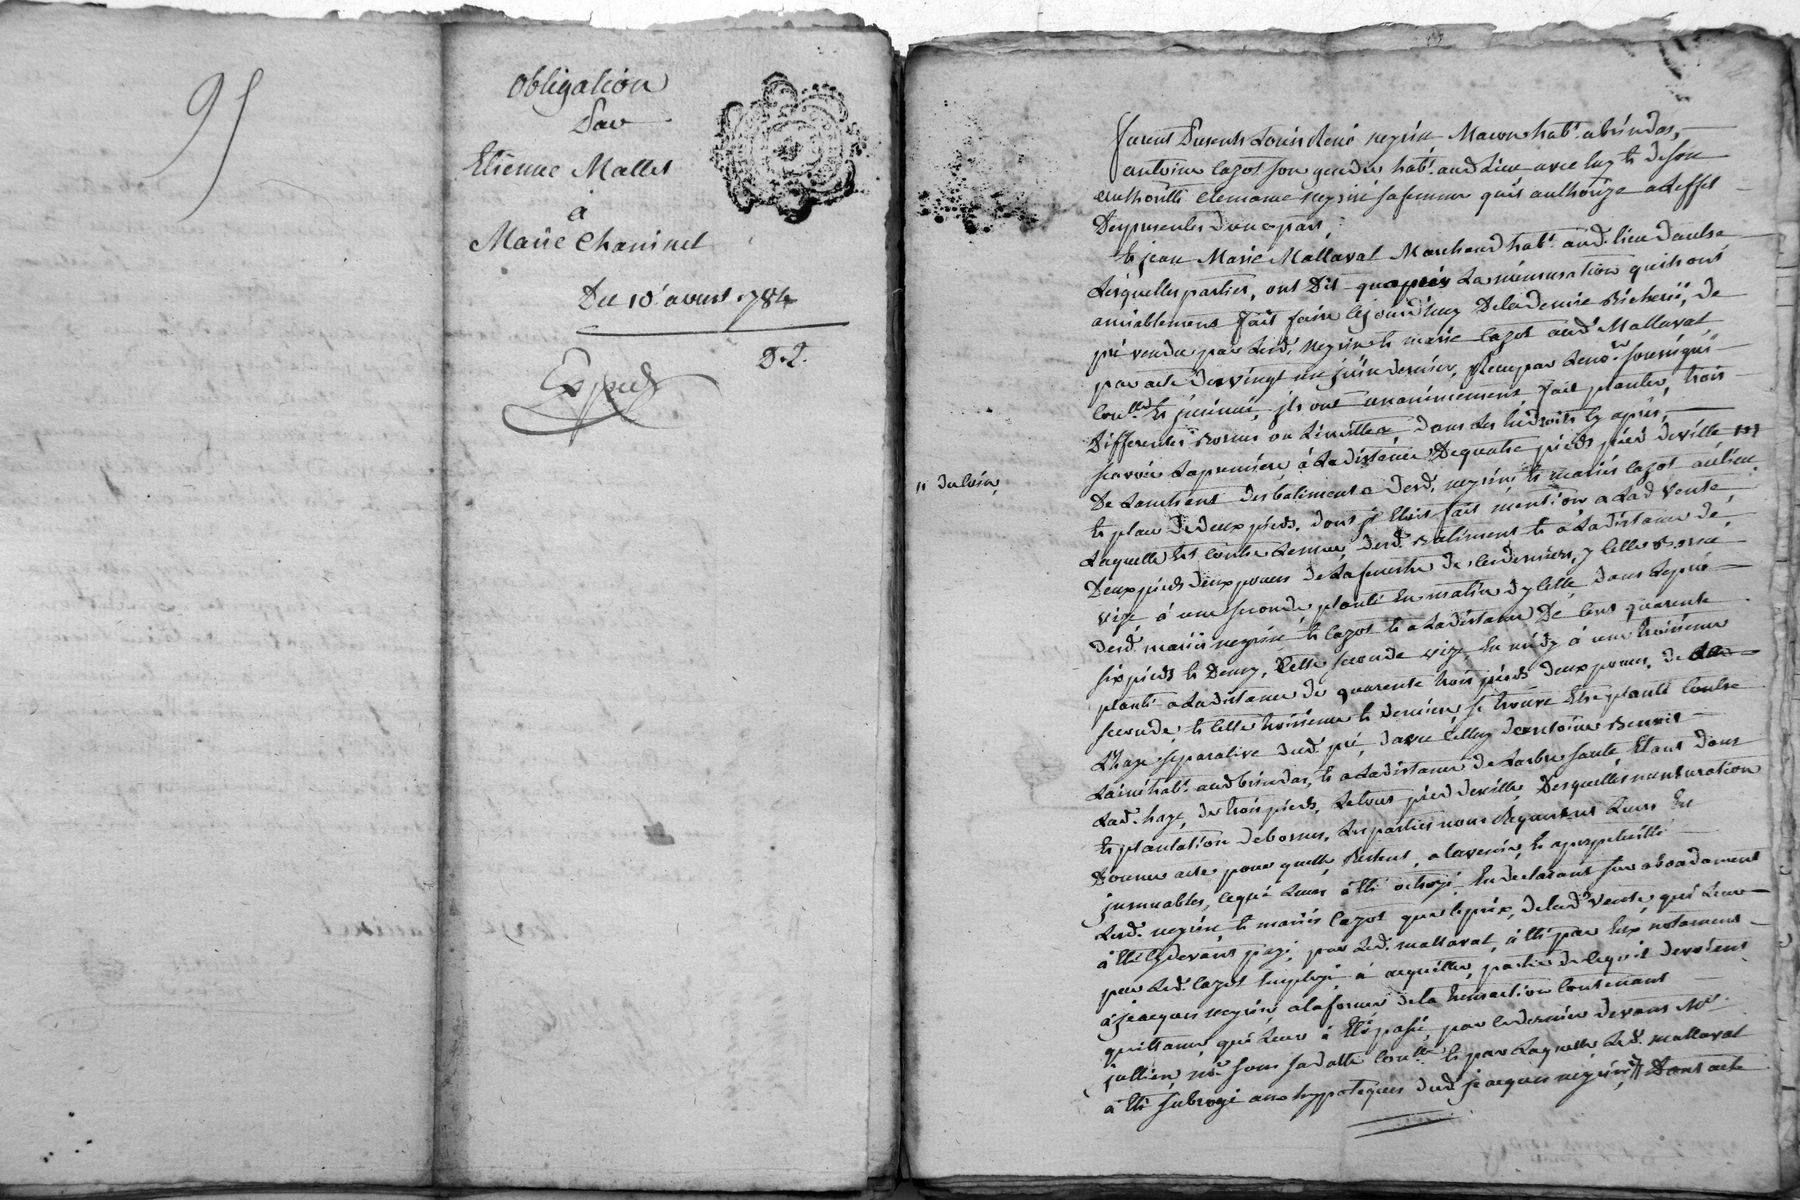 95
Obligation
Par
Etienne Mallet
a
Marie Chaninet
Du 10 avril 1784
D. 2.
Exped
furent Presents Louis René negrin Macon habt. a brindas,
antoine Cazot son gendre habt. aud Lieu avec luy et de son
authoritté Clemance negrin sa femme quil authorize a Leffet
Des presentes d'une part,
Et jean Marie Mallaval Marchand habt. aud. lieu dautre
Lesquelles parties, ont Dit quapres La mensuration quils ont
amiablement fait faire cejourdhuy De la demie Bicherée, de
pré vendu par Lesd. Negrin et mariés Cazot aud. Mallaval
par acte du vingt un juin dernier, Recu par Le nore. soussigné
Conllé. Et jnsinué, jls ont unanimement fait planter, trois
Differentes Bornes ou Limittes, dans Les Endroits cy après,
scavoir La premiere à La distance De quatre pieds pied de ville
" du loin,
De Lanchant des batiments Desd. negrin et mariés Cazot au lieu
et place de deux pieds, dont jl Etoit fait mention a Lad Vente,
Laquelle Est contre Le mur desd. Batiment et à La distance de
Deux pieds deux pouces de La fenestre de ce dernier, jcelle Borne
vize, à une seconde plantée En matin d'jcelle dans Le pré
desd. mariés negrin et Cazot et a La distance De cent quarente
six pieds et Demy, Cette seconde vize En midy à une troisieme
plantée a La distance de quarente trois pieds deux pouces, de La
seconde, et Cette troisieme et derniere se trouve Etre plantée contre
L'haye séparative dud. pré, davec celluy d'antoine Benoit
Lainé habt. aud brindas, et a La distance de Larbre saule Etant dans
Lad. haye, de trois pieds, Le tout pied de ville, Desquelles mensuration
Et plantation de bornes, Les parties nous Requierent Leurs En
Donner acte pour quelles Restent, a lavenir, et a perpetuitté
jmmuables, ce qui Leurs à Eté octroyé En declarant sur abondament
Lesd. negrin et mariés Cazot que le prix, de lad Vente qui Leur
à Eté cy devant payé, par Led. mallaval, à Eté par Eux notament
par Led. Cazot Employé à acquitter, partie de ce quil devoient
à jacques negrin a la forme de la transaction contenant
quittance qui Leur à Eté passé par ce dernier devant Me.
jullien nre sous sa datte Conllé. et par Laquelle Led. mallaval
à Eté subrogé aux hypoteques dud. jacques negrin, // Dont acte